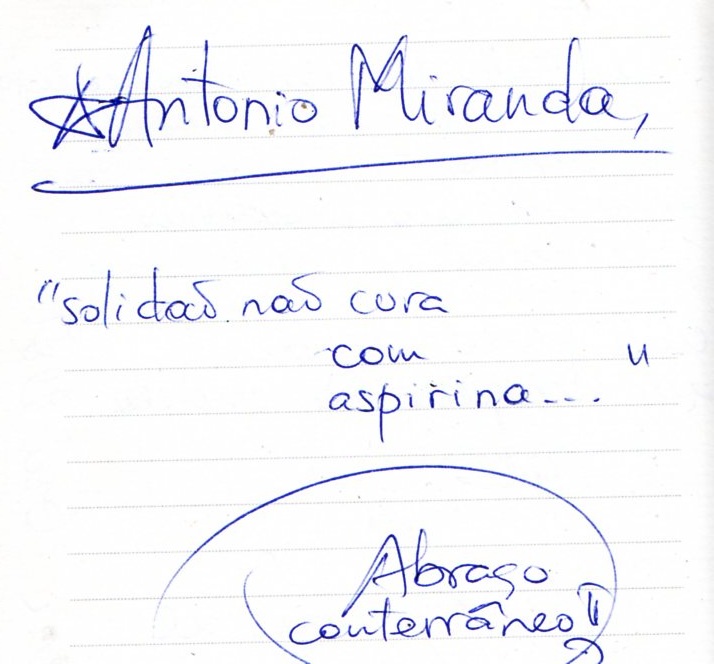 Antonio Miranda,
"solidaõ naõ cura
com "
aspirina...
Abraço
conterrâneo!!